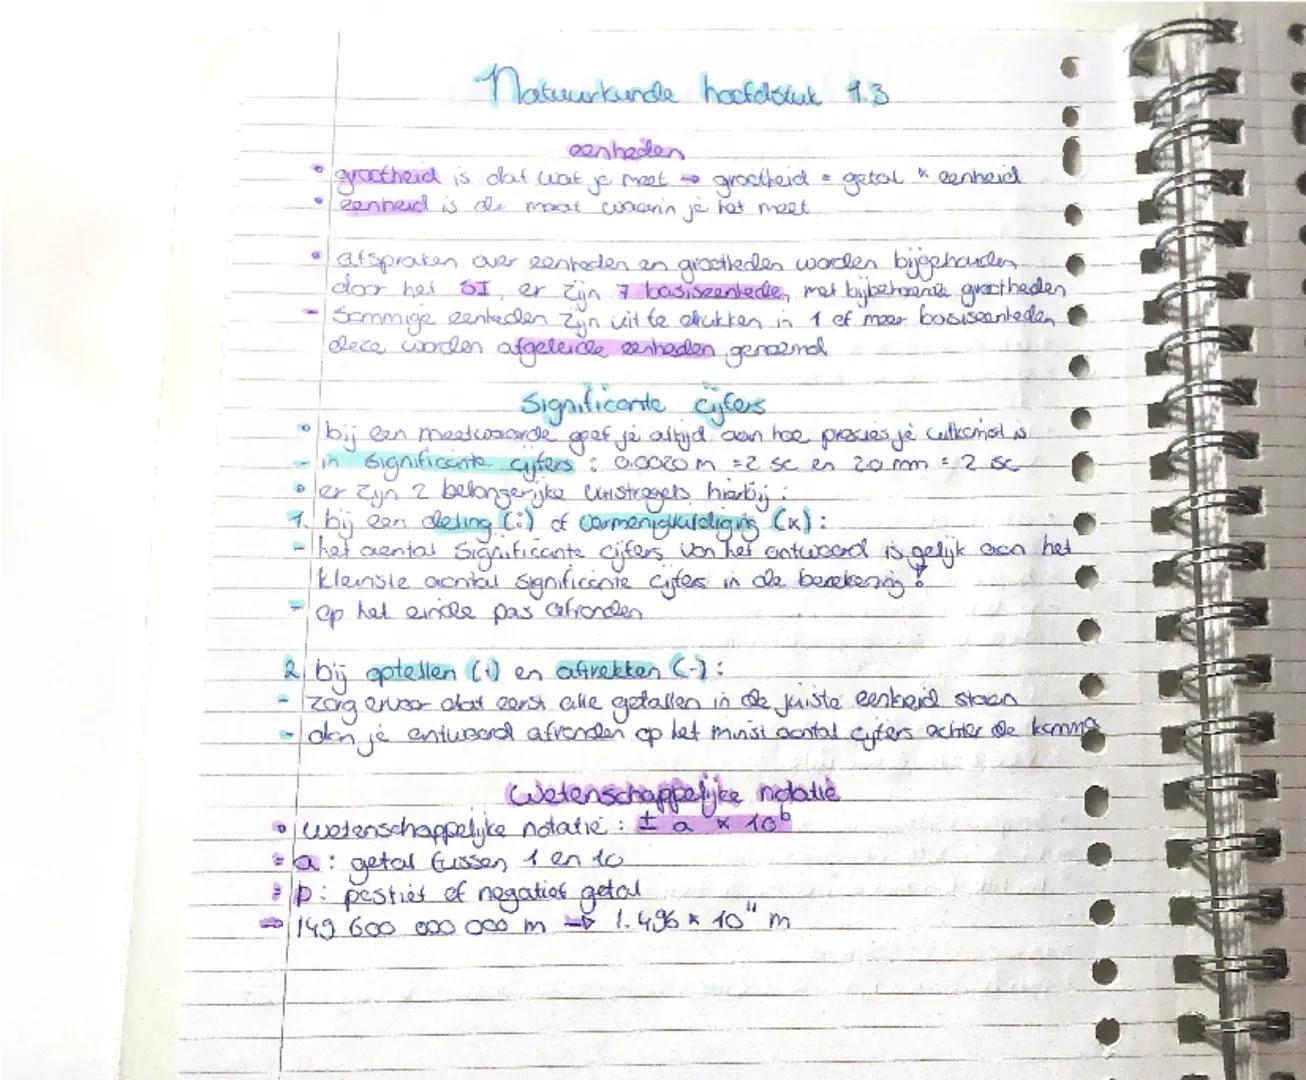 Natuurkunde hoofdstuk 1.3
eenheden
• grootheid is dat wat je meet → grootheid = getal × eenheid
• eenheid is de maat waarin je het meet
• afspraken over eenheden en grootheden worden bijgehouden
door het SI, er zijn 7 basiseenhede, met bijbehorende grootheden
- Sommige eenheden zijn uit te drukken in 1 of meer basiseenheden,
deze worden afgeleide eenheden genoemd
Significante cijfers
• bij een meetwaarde geef je altijd aan hoe precies je uitkomst is
- in significante cijfers : 0.0020 m = 2 sc en 20 mm = 2 sc
• er zijn 2 belangerijke vuistregels hierbij :
1. bij een deling (:) of vermenigvuldiging (x) :
- het aantal significante cijfers van het antwoord is gelijk aan het
kleinste aantal significante cijfers in de berekening !
- op het einde pas afronden
2 bij optellen (+) en aftrekken (-) :
- zorg ervoor dat eerst alle getallen in de juiste eenheid staan
- dan je antwoord afronden op het minst aantal cijfers achter de komma
Wetenschappelijke notatie
• wetenschappelijke notatie : ± a × 10ᵇ
- a : getal tussen 1 en 10
- b : postief of negatief getal
→ 149 600 000 000 m → 1.496 × 10¹¹ m